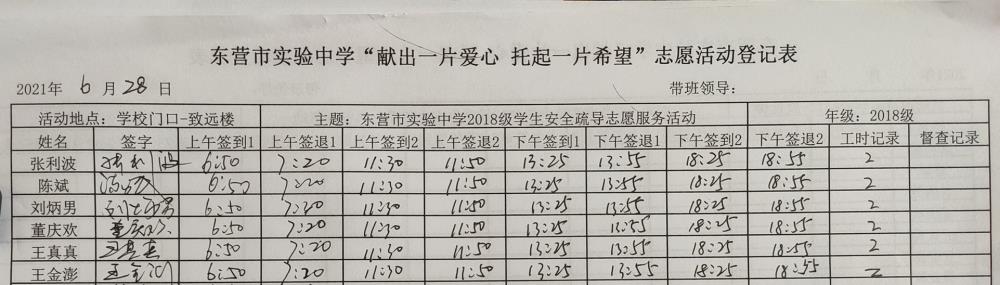 东营市实验中学“献出一片爱心 托起一片希望”志愿活动登记表
2021年 6 月 28 日 带班领导:
活动地点: 学校门口-致远楼 主题: 东营市实验中学2018级学生安全疏导志愿服务活动 年级: 2018级
姓名 签字 上午签到1 上午签退1 上午签到2 上午签退2 下午签到1 下午签退1 下午签到2 下午签退2 工时记录 督查记录
张利波 张利波 6:50 7:20 11:30 11:50 13:25 13:55 18:25 18:55 2
陈斌 6:50 7:20 11:30 11:50 13:25 13:55 18:25 18:55 2
刘炳男 刘炳男 6:50 7:20 11:30 11:50 13:25 13:55 18:25 18:55 2
董庆欢 董庆欢 6:50 7:20 11:30 11:50 13:25 13:55 18:25 18:55 2
王真真 王真真 6:50 7:20 11:30 11:50 13:25 13:55 18:25 18:55 2
王金澎 王金澎 6:50 7:20 11:30 11:50 13:25 13:55 18:25 18:55 2